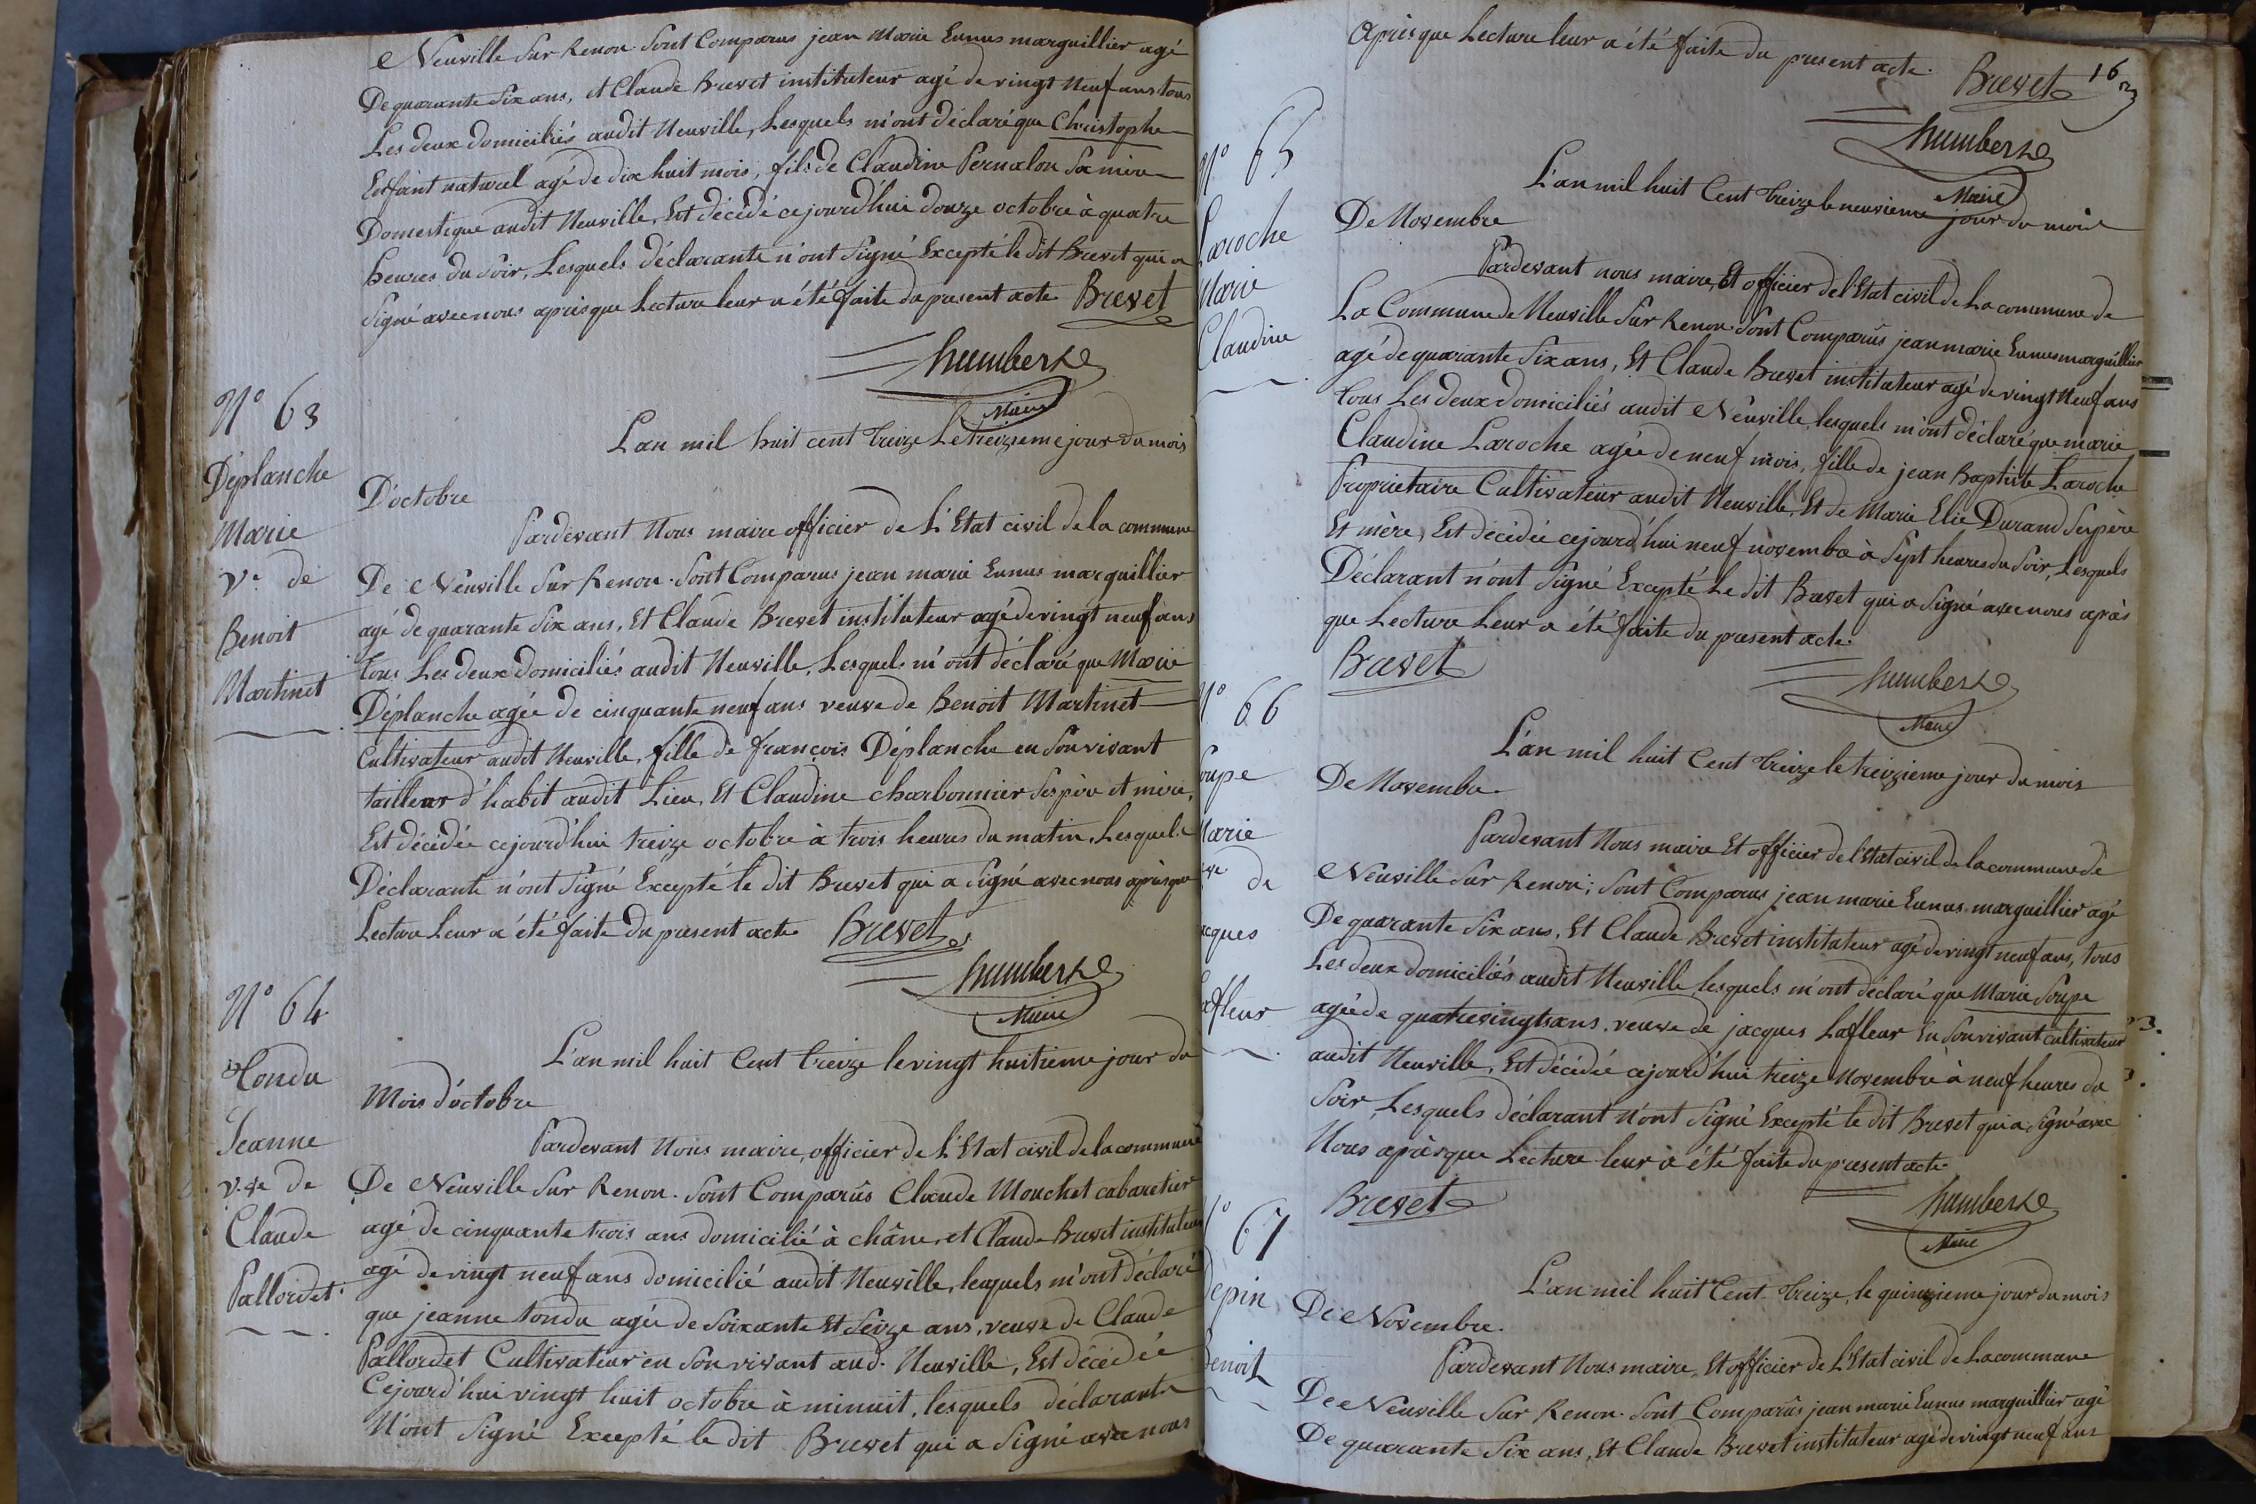 Neuville Sur Renon. Sont Comparus jean Marie Eunus marguillier agé
De quarante Six ans, et Claude Brevet instituteur agé de vingt Neuf ans tous
Les deux domiciliés audit Neuville, Lesquels m'ont déclaré que Christophe
Enfant naturel agé de dix huit mois, fils de Claudine Pernalon Sa mère
Domestique audit Neuville, Est décédé cejourd'hui douze octobre à quatre
heures du Soir, Lesquels déclarants n'ont Signé Excepté le dit Brevet qui a
Signé avec nous après que Lecture leur a été faite du present acte. Brevet
humbert
Maire
N° 63
Déplanche
Marie
Ve. de
Benoit
Martinet
L'an mil huit cent treize Le treizieme jour du mois
D'octobre
Pardevant Nous maire officier de L'Etat civil de la commune
De Neuville Sur Renon. Sont Comparus jean marie Eunus marguillier
agé de quarante Six ans, Et Claude Brevet instituteur agé de vingt neuf ans
tous Les deux domiciliés audit Neuville, Lesquels m'ont déclaré que Marie
Déplanche agée de cinquante neuf ans veuve de Benoit Martinet
Cultivateur audit Neuville, fille de françois Déplanche en Son vivant
tailleur d'habit audit Lieu, Et Claudine charbonnier Ses père et mère,
Est décédée cejourd'hui treize octobre à trois heures du matin, Lesquels
Déclarants n'ont Signé Excepté le dit Brevet qui a Signé avec nous après que
Lecture Leur a été faite du present acte. Brevet
humbert
Maire
N° 64
Tondu
Jeanne
v.ve de
Claude
Pallordet
L'an mil huit Cent treize le vingt huitieme jour du
Mois d'octobre
Pardevant Nous maire, officier de L'Etat civil de la commune
De Neuville Sur Renon. Sont Comparûs Claude Mouchet cabaretier
agé de cinquante trois ans domicilié à châne, et Claude Brevet instituteur
agé de vingt neuf ans domicilié audit Neuville, lesquels m'ont déclaré
que jeanne tondu agée de Soixante Et Seize ans, veuve de Claude
Pallordet Cultivateur en Son vivant aud. Neuville, Est décédée
Cejourd'hui vingt huit octobre à minuit, lesquels déclarants
N'ont Signé Excepté le dit Brevet qui a Signé avec nous
Après que Lecture leur a été faite du present acte.
Brevet 16
humbert
Maire
N° 65
Laroche
Marie
Claudine
L'an mil huit Cent treize le neuvieme jour du mois
De Novembre
Pardevant nous maire, Et officier de l'Etat civil de La commune de
La Commune de Neuville Sur Renon. Sont Comparûs jean marie Eunus marguillier
agé de quarante Six ans, Et Claude Brevet instituteur agé de vingt Neuf ans
tous Les deux domiciliés audit Neuville, lesquels m'ont déclaré que marie
Claudine Laroche agée de neuf mois, fille de jean Baptiste Laroche
Proprietaire Cultivateur audit Neuville, Et de Marie Elie Durand Ses père
Et mère, Est décédée cejourd'hui neuf novembre à Sept heures du Soir, Lesquels
Déclarant n'ont Signé Excepté Le dit Brevet qui a Signé avec nous après
que Lecture Leur a été faite du present acte.
Brevet
humbert
Maire
N° 66
oupe
Marie
ve de
acques
afleur
L'an mil huit Cent treize le treizieme jour du mois
De Novembre.
Pardevant Nous maire Et officier de l'Etat civil de la commune de
Neuville Sur Renon; Sont Comparus jean marie Eunus marguillier agé
De quarante Six ans, Et Claude Brevet instituteur agé de vingt neuf ans, tous
Les deux domiciliés audit Neuville, lesquels m'ont déclaré que Marie Soupe
agée de quatrevingts ans, veuve de jacques Lafleur En Son vivant cultivateur
audit Neuville, Est décédée cejourd'hui treize Novembre à neuf heures du
Soir, Lesquels déclarant N'ont Signé Excepté le dit Brevet qui a Signé avec
Nous après que Lecture leur a été faite du present acte.
Brevet
humbert
Maire
N° 67
epin
Benoit
L'an mil huit Cent treize, le quinzieme jour du mois
De Novembre.
Pardevant Nous maire, Et officier de L'Etat civil de La commune
De Neuville Sur Renon. Sont Comparûs jean marie Eunus marguillier agé
De quarante Six ans, Et Claude Brevet instituteur agé de vingt neuf ans